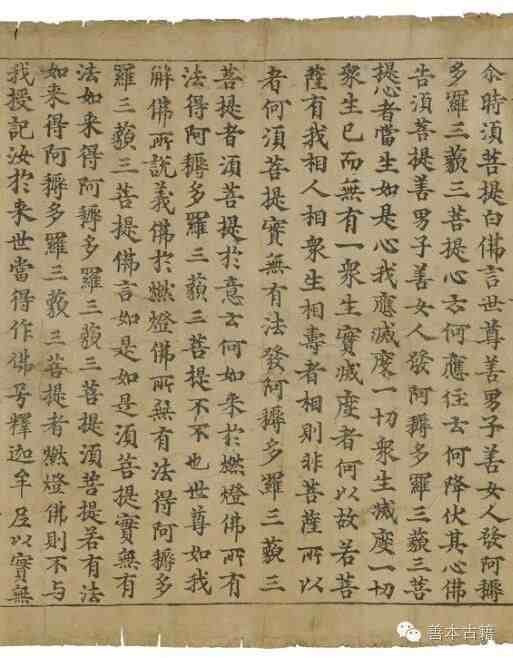 尒時須菩提白佛言世尊善男子善女人發阿耨
多羅三藐三菩提心云何應住云何降伏其心佛
告須菩提善男子善女人發阿耨多羅三藐三菩
提心者當生如是心我應滅度一切衆生滅度一切
衆生已而無有一衆生實滅度者何以故若菩
薩有我相人相衆生相壽者相則非菩薩所以
者何須菩提實無有法發阿耨多羅三藐三
菩提者須菩提於意云何如来於燃燈佛所有
法得阿耨多羅三藐三菩提不不也世尊如我
解佛所說義佛於燃燈佛所無有法得阿耨多
羅三藐三菩提佛言如是如是須菩提實無有
法如来得阿耨多羅三藐三菩提須菩提若有法
如来得阿耨多羅三藐三菩提者燃燈佛則不与
我授記汝於来世當得作佛号釋迦牟尼以實無
善本古籍